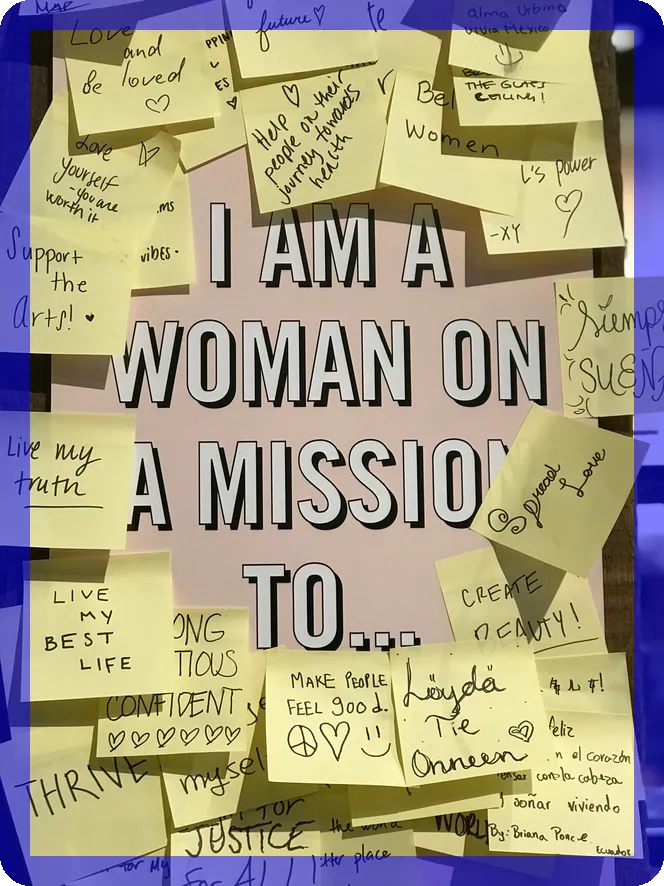 MAR
Love
and
Be loved
future
te
alma Urbina
THE GLASS
CEILING!
Help
people on their
journey towards
health
Bel
Women
L's power
-XY
Love
yourself
-you are
worth it
vibes-
Support
the
Arts!
I AM A
WOMAN ON
A MISSION
TO...
Siemp
SUEÑ
Live my
truth
Spread
Love
CREATE
BEAUTY!
LIVE
MY
BEST
LIFE
ONG
TIOUS
CONFIDENT
MAKE PEOPLE
FEEL good.
Löydä
Tie
Onneen
feliz
n el corazón
ensar con la cabeza
soñar viviendo
By: Briana Ponce.
Ecuador
THRIVE
mysel
FOR
JUSTICE
For All
the world
place
WORL
for My